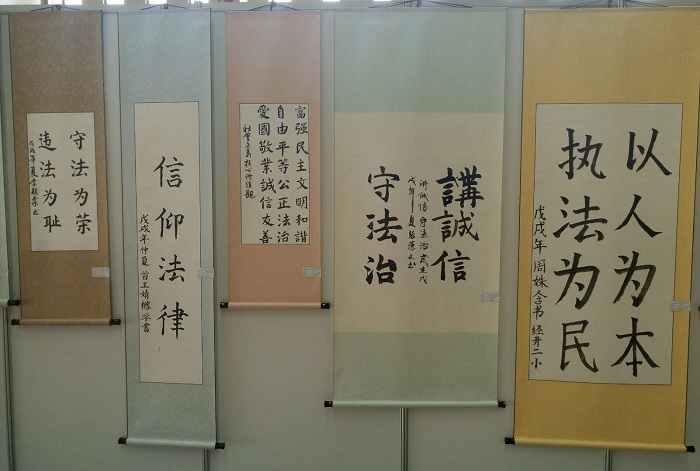 守法为荣
违法为耻
信仰法律
戊戌年仲夏
富强民主文明和谐
自由平等公正法治
愛國敬業誠信友善
社會主義核心价值觀
講誠信
守法治
以人为本
执法为民
戊戌年
周姝含书
经开二小